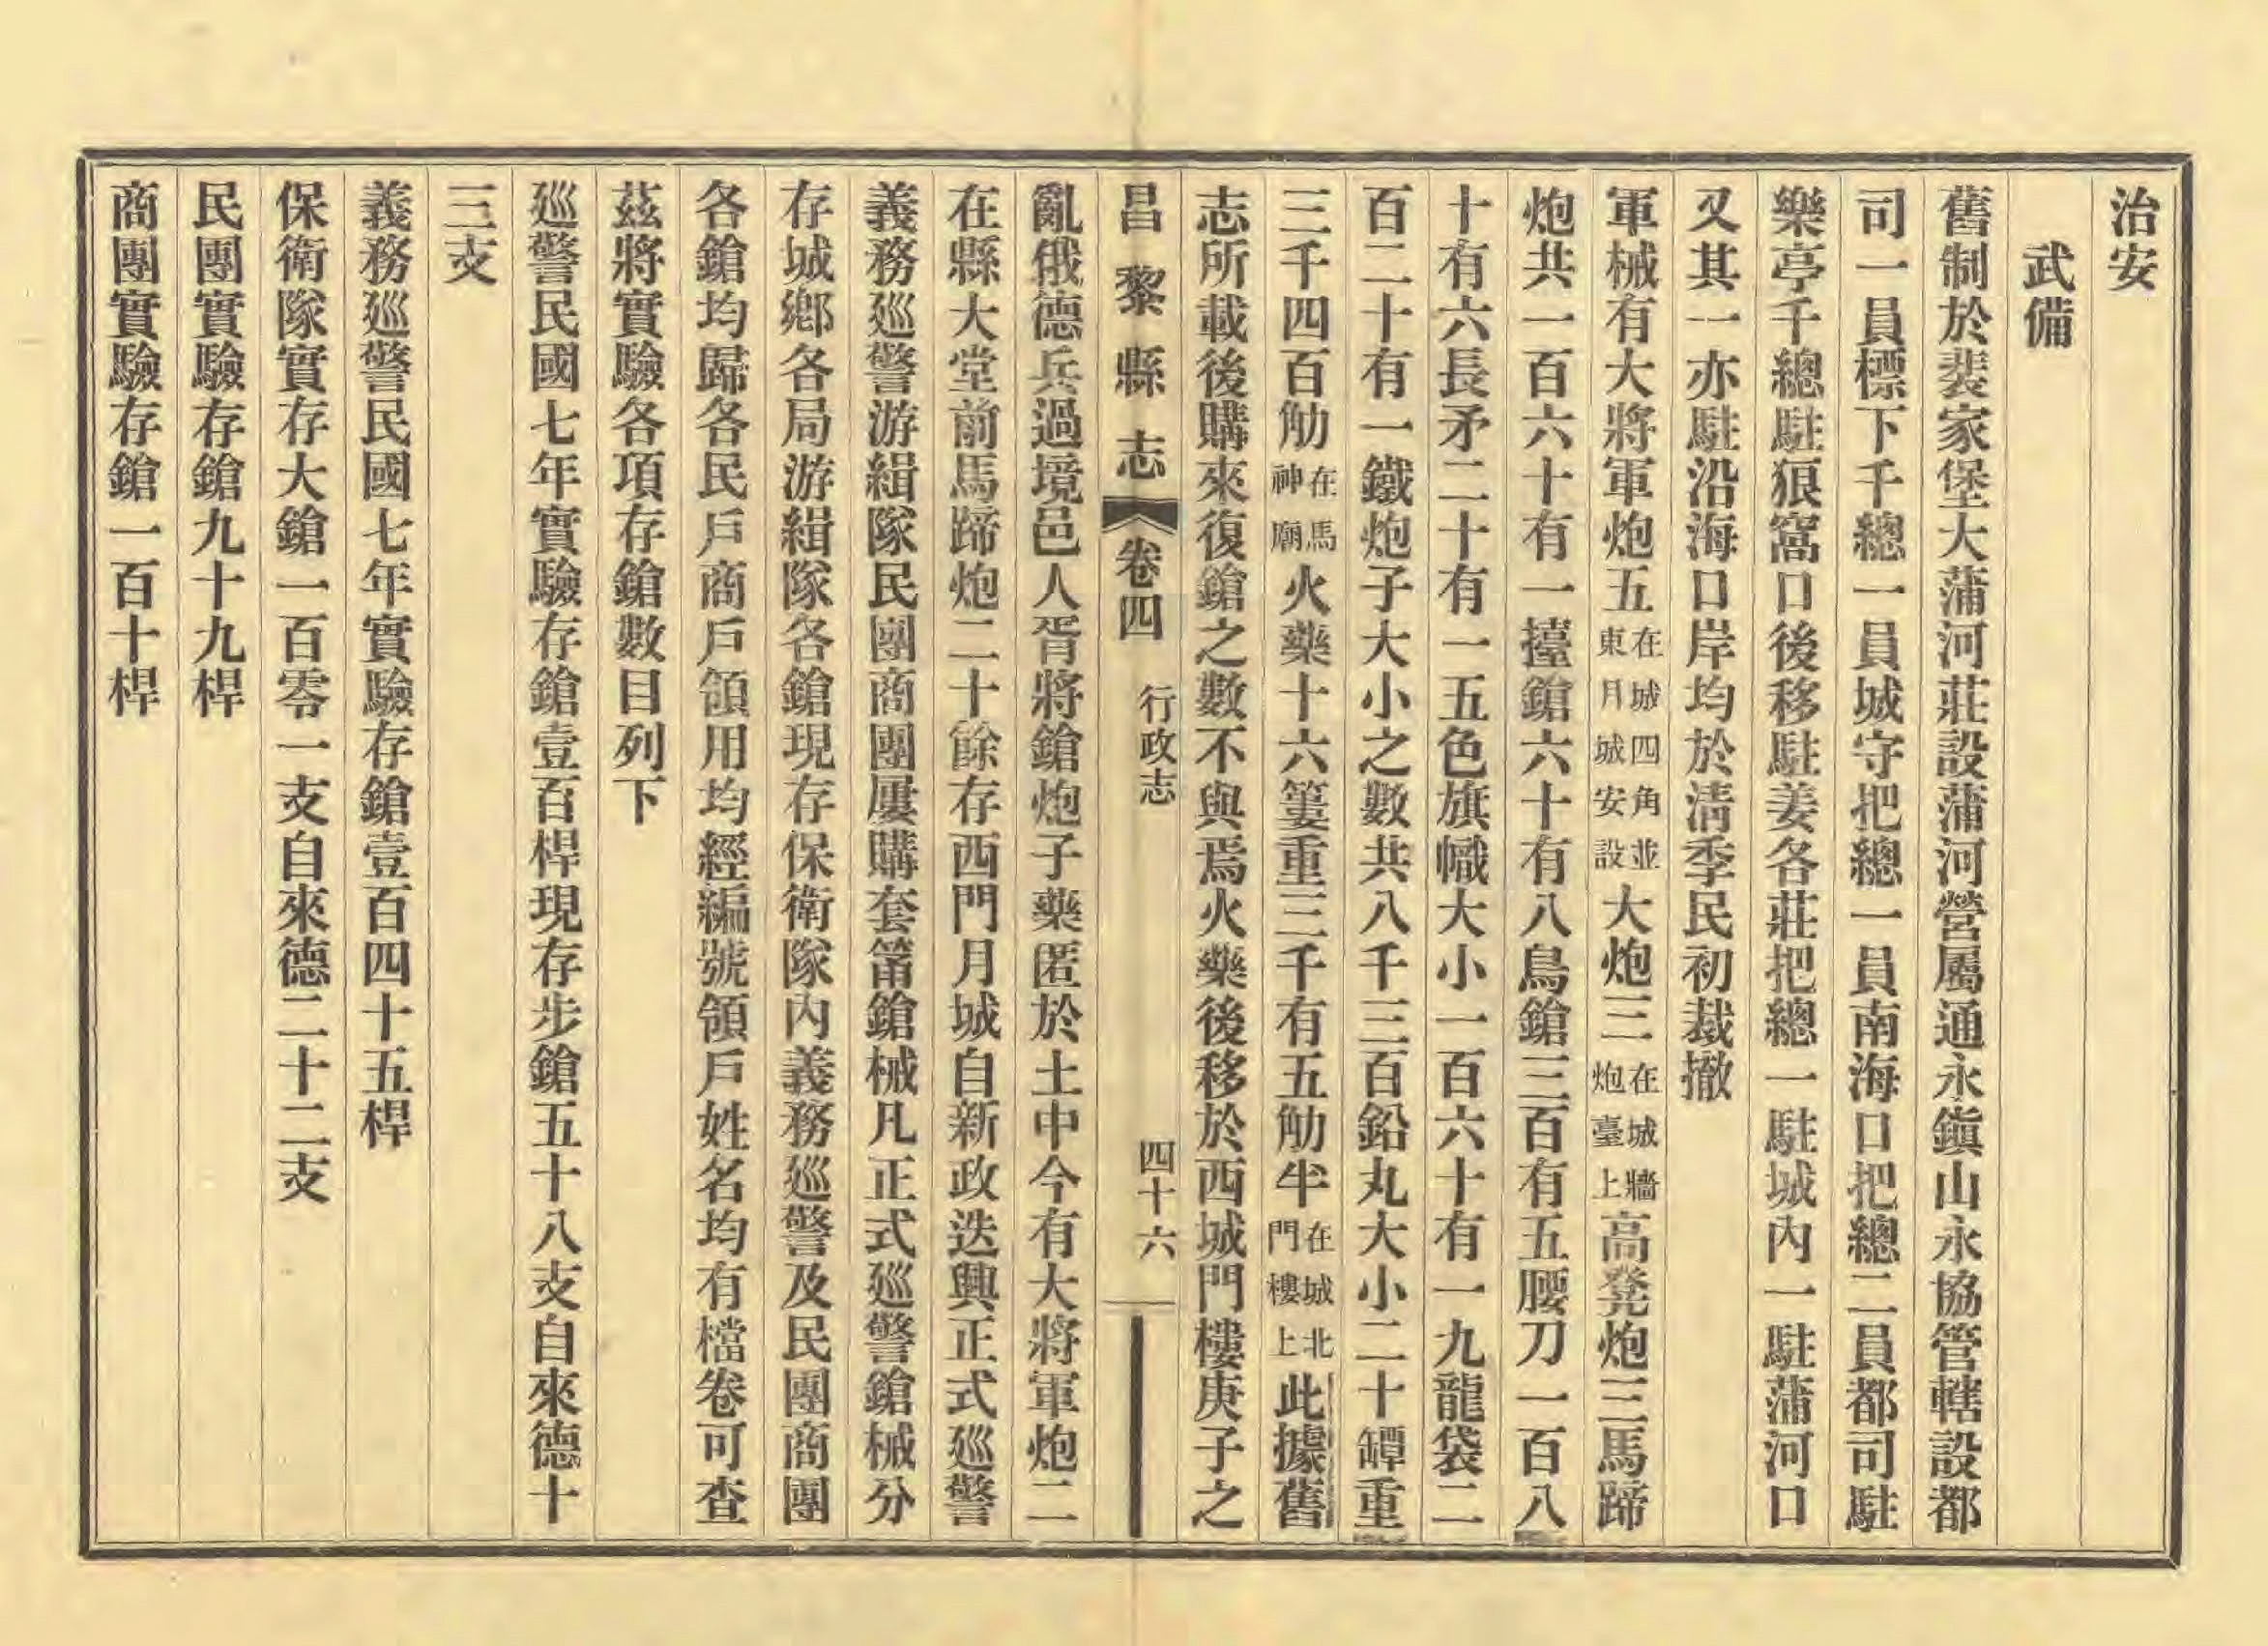 治安
武備
舊制於裴家堡大蒲河莊設蒲河營屬通永鎭山永協管轄設都
司一員標下千總一員城守把總一員南海口把總二員都司駐
樂亭千總駐狼窩口後移駐姜各莊把總一駐城內一駐蒲河口
又其一亦駐沿海口岸均於淸季民初裁撤
軍械有大將軍炮五在城四角並東月城安設大炮三在城牆炮臺上高凳炮三馬蹄
炮共一百六十有一擡鎗六十有八鳥鎗三百有五腰刀一百八
十有六長矛二十有一五色旗幟大小一百六十有一九龍袋二
百二十有一鐵炮子大小之數共八千三百鉛丸大小二十罈重
三千四百觔在馬神廟火藥十六簍重三千有五觔半在城北門樓上此據舊
志所載後購來復鎗之數不與焉火藥後移於西城門樓庚子之
昌黎縣志 卷四 行政志 四十六
亂俄德兵過境邑人胥將鎗炮子藥匿於土中今有大將軍炮二
在縣大堂前馬蹄炮二十餘存西門月城自新政迭興正式巡警
義務巡警游緝隊民團商團屢購套筩鎗械凡正式巡警鎗械分
存城鄉各局游緝隊各鎗現存保衛隊內義務巡警及民團商團
各鎗均歸各民戶商戶領用均經編號領戶姓名均有檔卷可查
茲將實驗各項存鎗數目列下
巡警民國七年實驗存鎗壹百桿現存步鎗五十八支自來德十
三支
義務巡警民國七年實驗存鎗壹百四十五桿
保衛隊實存大鎗一百零一支自來德二十二支
民團實驗存鎗九十九桿
商團實驗存鎗一百十桿